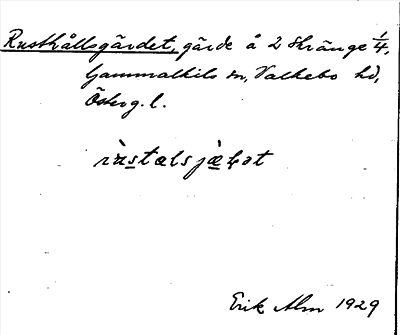 Rusthållsgärdet, gärde å 2 Skränge 1/4,
Gammalkils sn, Valkebo hd,
Österg. l.
Erik Alm 1929